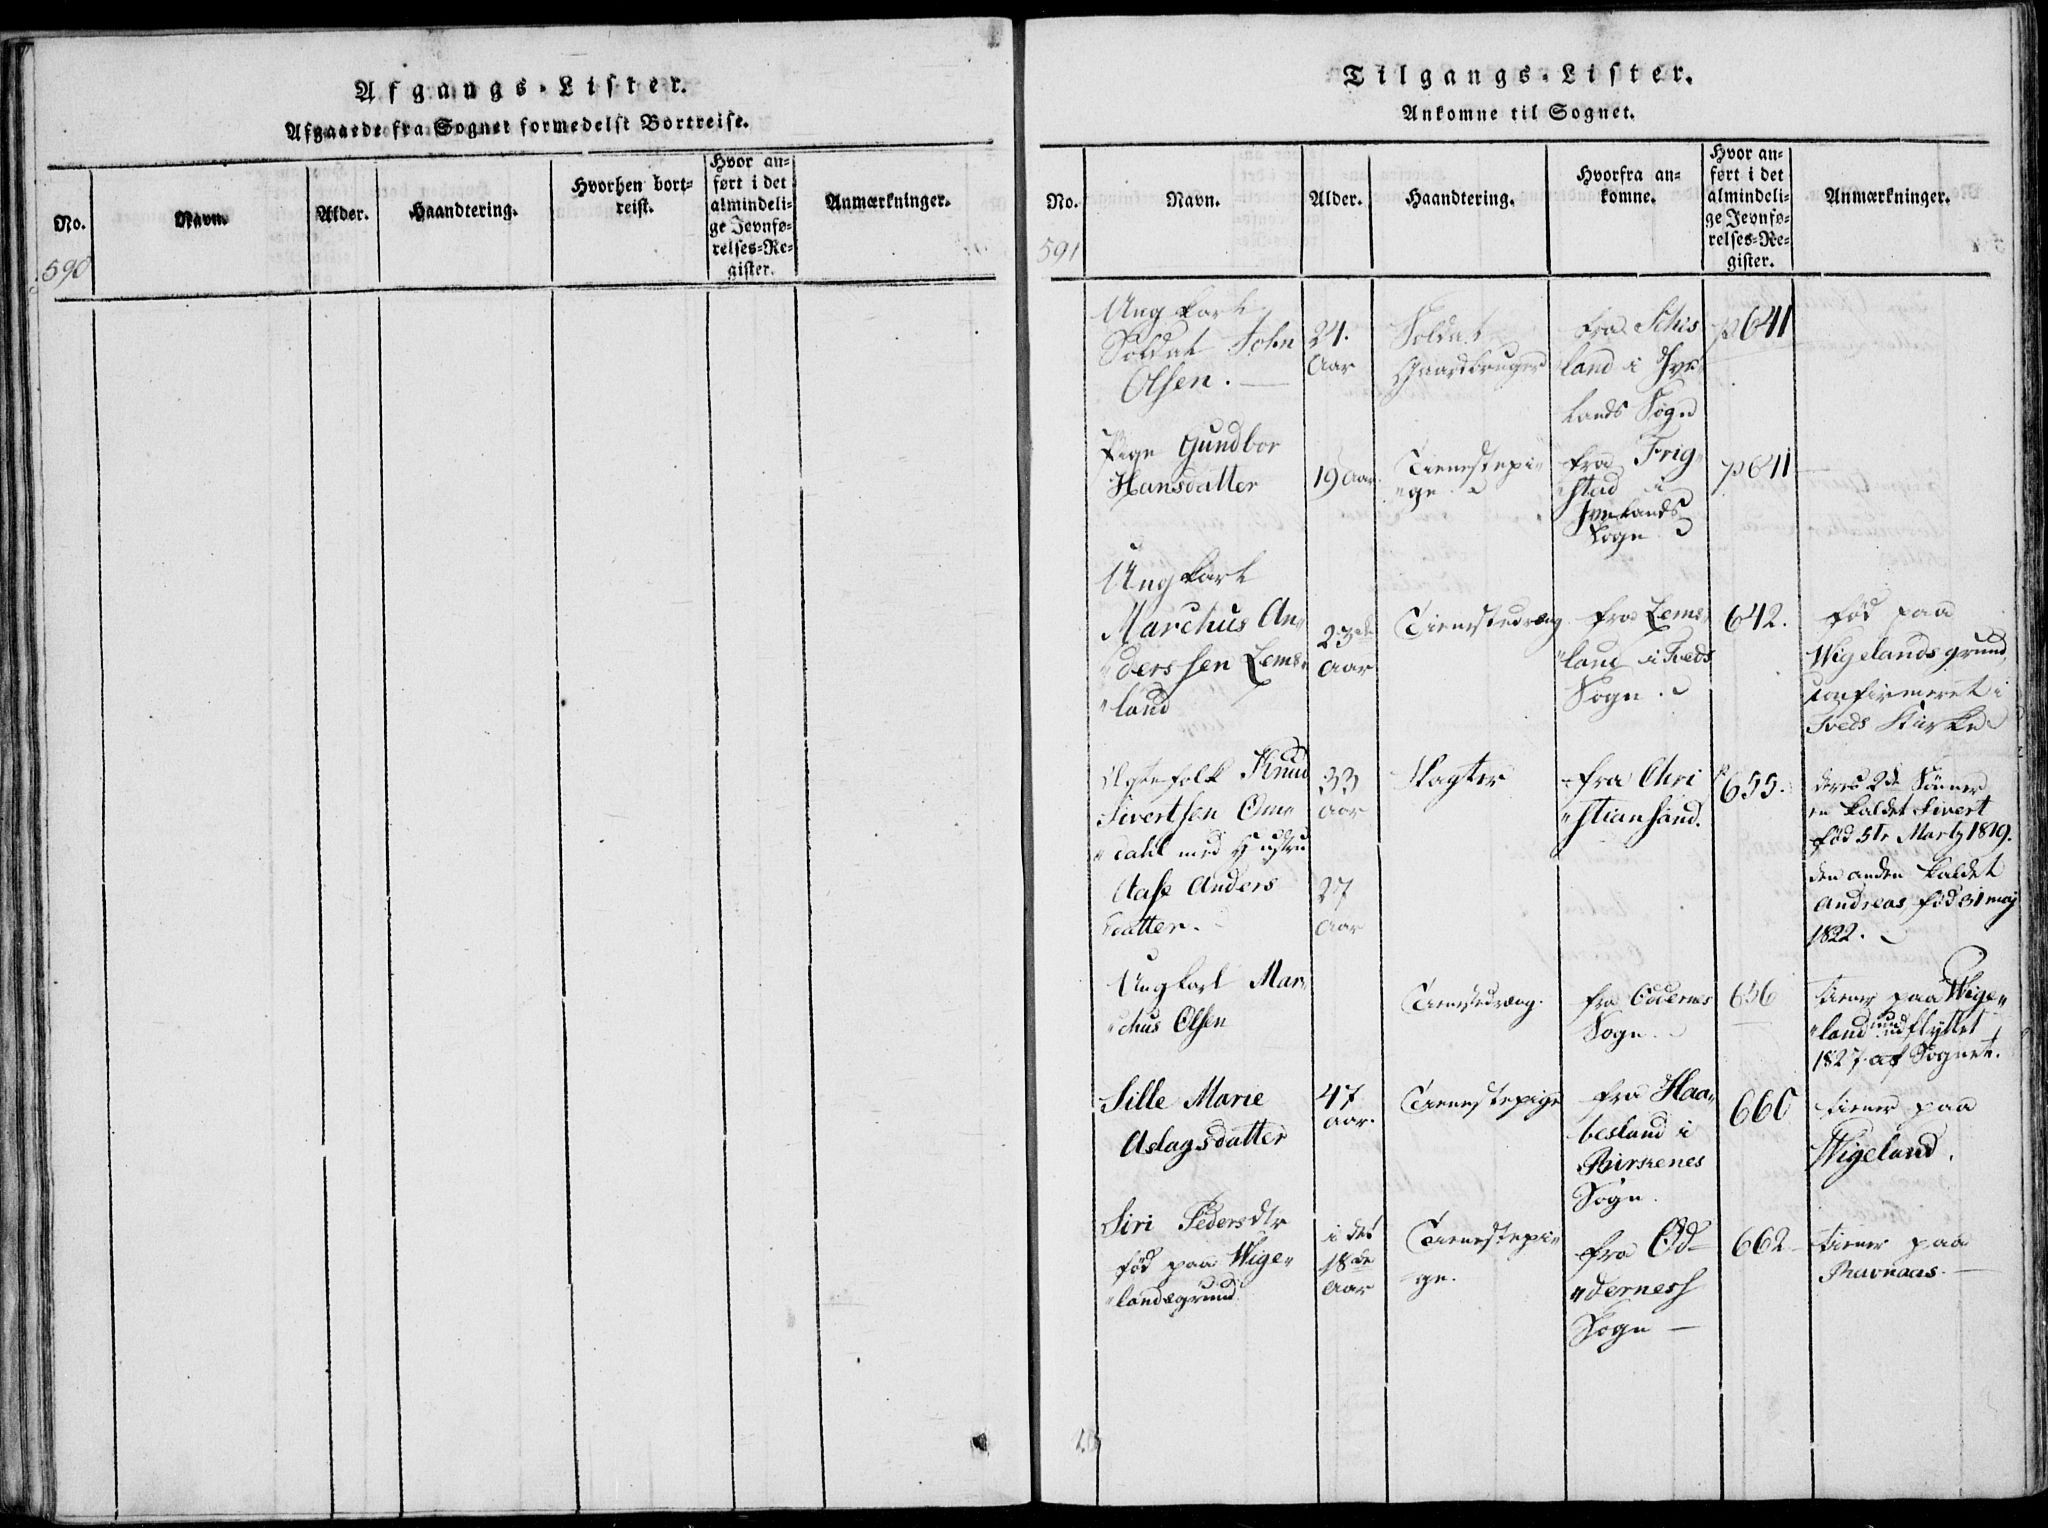 Afgangs-Lister.
Afgaaede fra Sognet formedelst Bortreise.
No.
Navn.
Alder.
Haandtering.
Hvorhen bort-
reist.
Hvor an-
ført i det
almindeli-
ge Jevnfø-
relses-Re-
gister.
Anmærkninger.
590
Tilgangs-Lister.
Ankomne til Sognet.
No.
Navn.
Alder.
Haandtering.
Hvorfra an-
komne.
Hvor an-
ført i det
almindeli-
ge Jevnfø-
relses-Re-
gister.
Anmærkninger.
591
Ungkarl
Soldat John
Olsen.
24.
Aar
Soldat
Gaardbruger
fra
land i
lands Sogn
p 641
Pige Gundbor
Hansdatter
19 Aar
Tienestepi
"ge
fra Frig
stad i
lands
Sogn
p 641
Ungkarl
Marchus An"
"derssen Lems"
"land
23de
Aar
Tienestedreng
fra Lems"
"land i Tveds
Sogn
642.
fød paa
Wigelands grund,
confirmeret i
Tveds Kirke
Ægtefolk Knud
Sivertsen Om"
"dahl med Hustru
Aase Anders
datter.
33
Aar
27
Aar
Slagter
fra Chri
"stiansand.
655.
deres 2de Sønner
en kaldet Sivert
fød 5te Martz 1819.
den anden kaldet
Andreas, fød 31 maj
1822.
Ungkarl Mar"
"chus Olsen
Tienestedreng.
fra Oddernes
Sogn.
656
tiener paa Wige"
"land udflyttet
1827 af Sognet.
Sille Marie
Aslagsdatter
47
Aar.
Tienestepige
fra Haa"
besland i
Birkenes
Sogn.
660
tiener paa
Wigeland.
Siri Pedersdtr
fød paa Wige"
"landsgrund.
i det
18de
Aar
Tienestepi"
ge.
fra Od=
"derness
Sogn
662
tiener paa
Ravnaas.